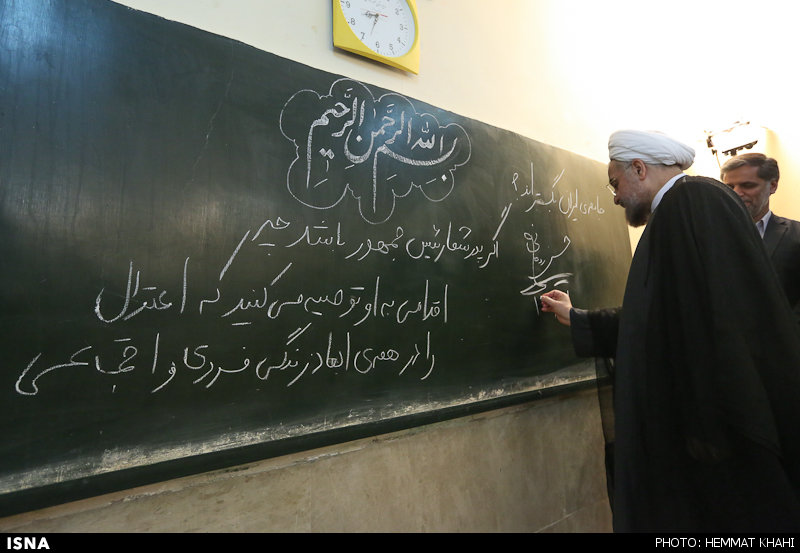 بسم الله الرحمن الرحیم
اگر پدر شما رئیس جمهور باشد چه
اقدامی به او توصیه می کنید که اعتدال
را در همه ی ابعاد زندگی فردی و اجتماعی
جامعه ی ایران بگستراند؟
ISNA
PHOTO: HEMMAT KHAHI